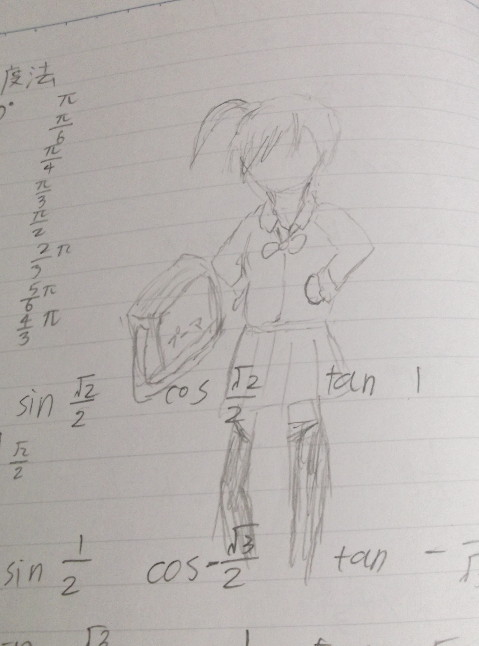 度法
π
π/6
π/4
π/3
π/2
2/3 π
5/6 π
4/3 π
sin √2/2 cos √2/2 tan 1
√2/2
sin 1/2 cos -√3/2 tan -